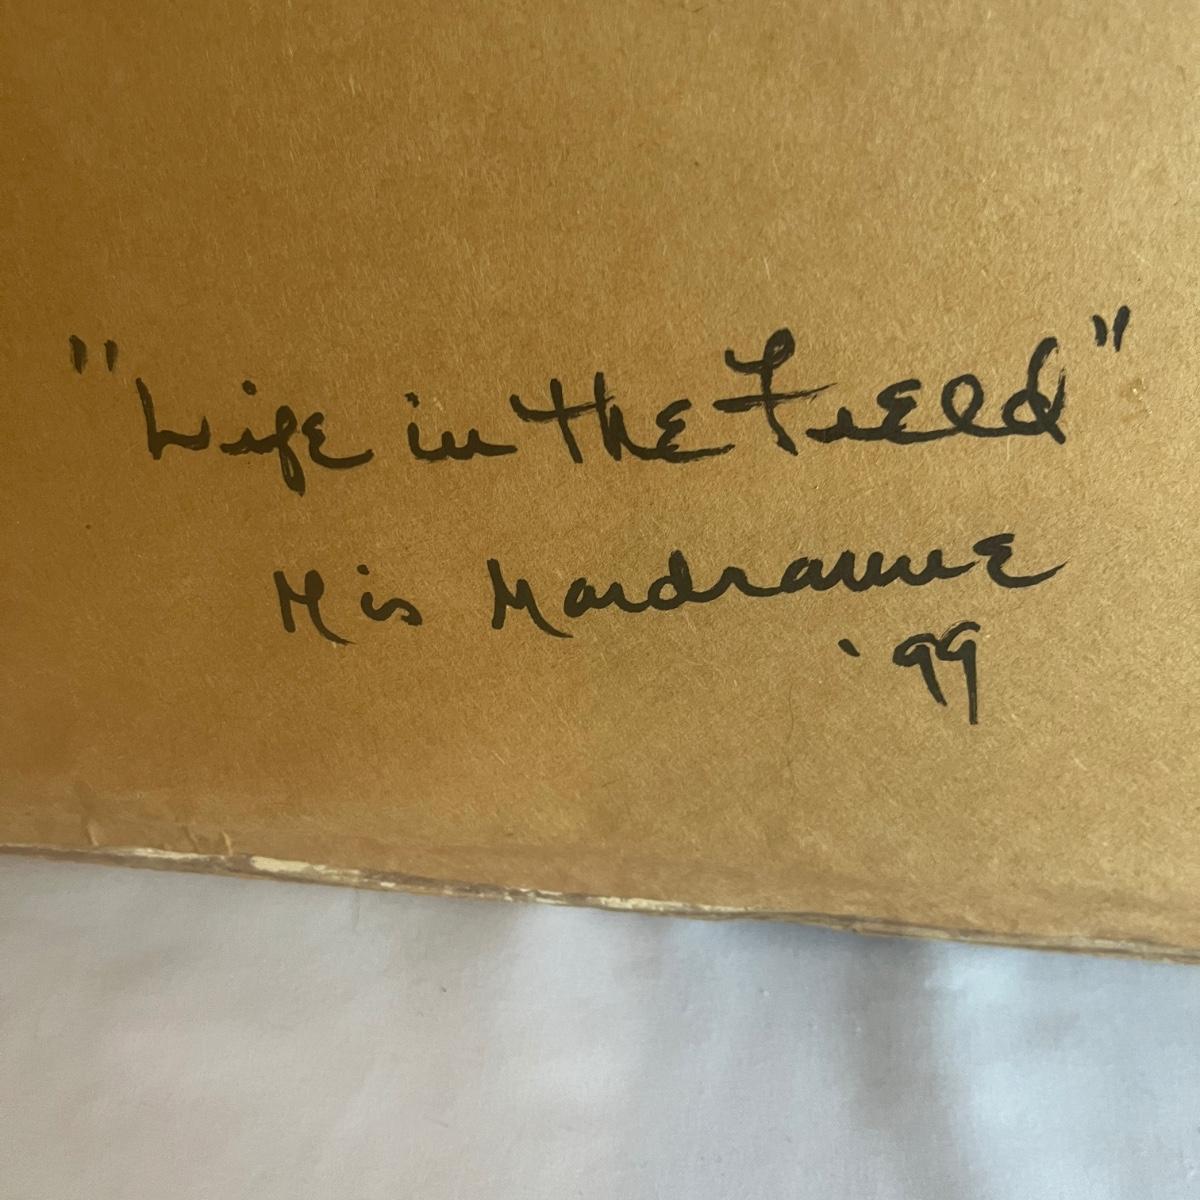 "Life in the Field"
Mis Mardranne
'99